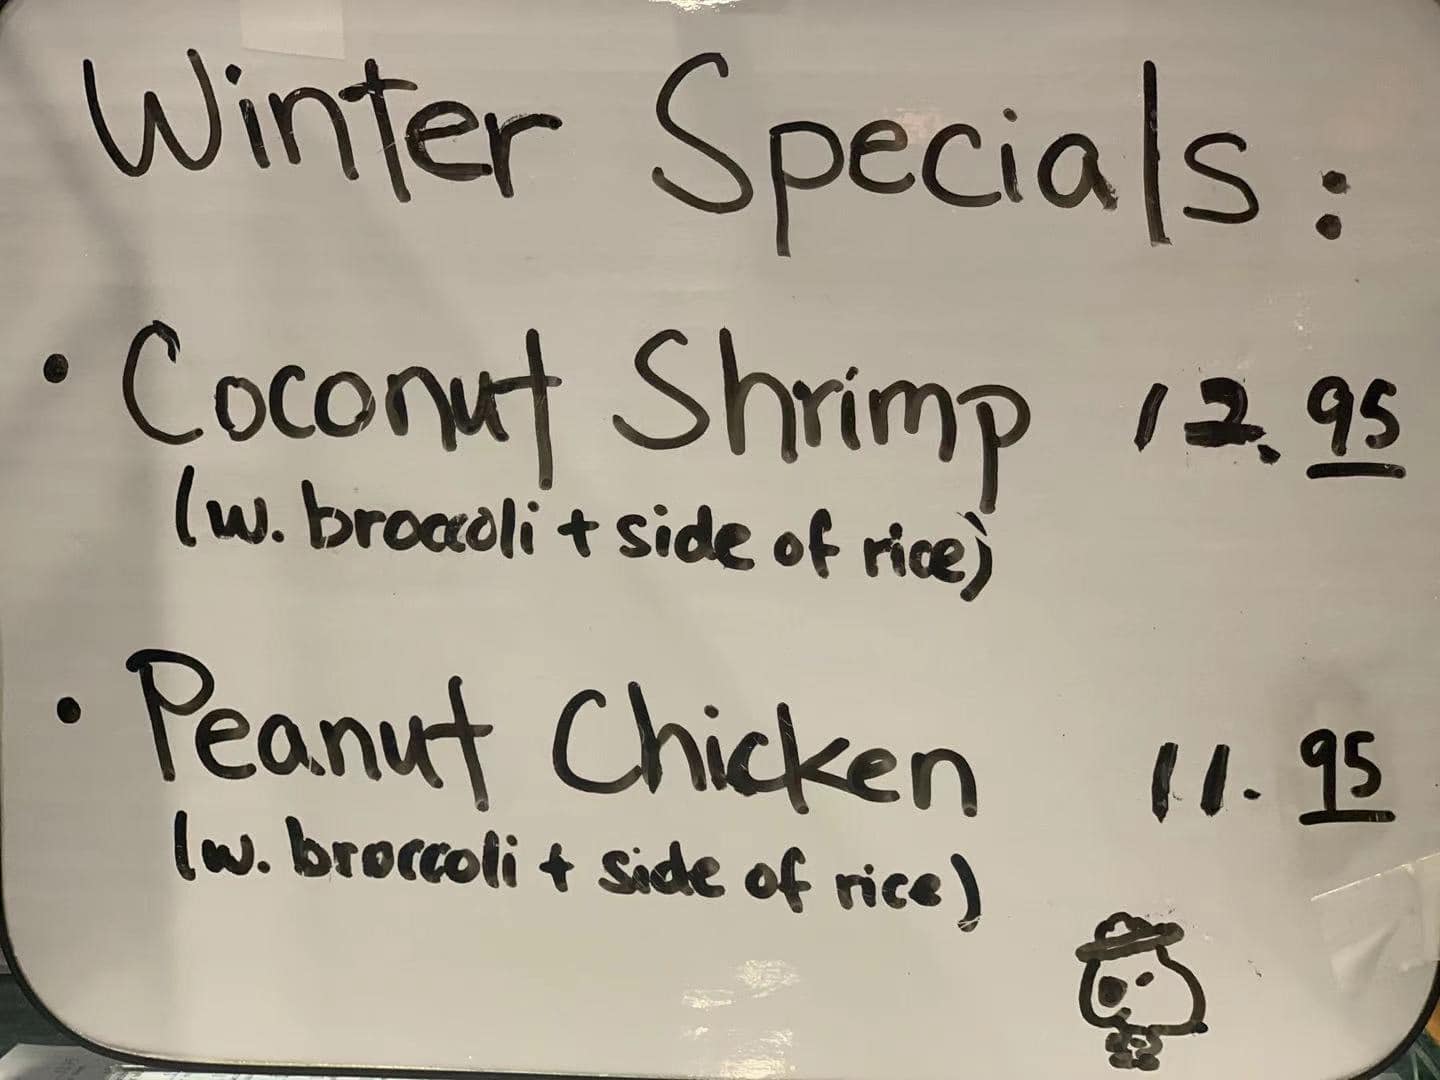 Winter Specials:
• Coconut Shrimp 12.95
(w. broccoli + side of rice)
• Peanut Chicken 11.95
(w. broccoli + side of rice)